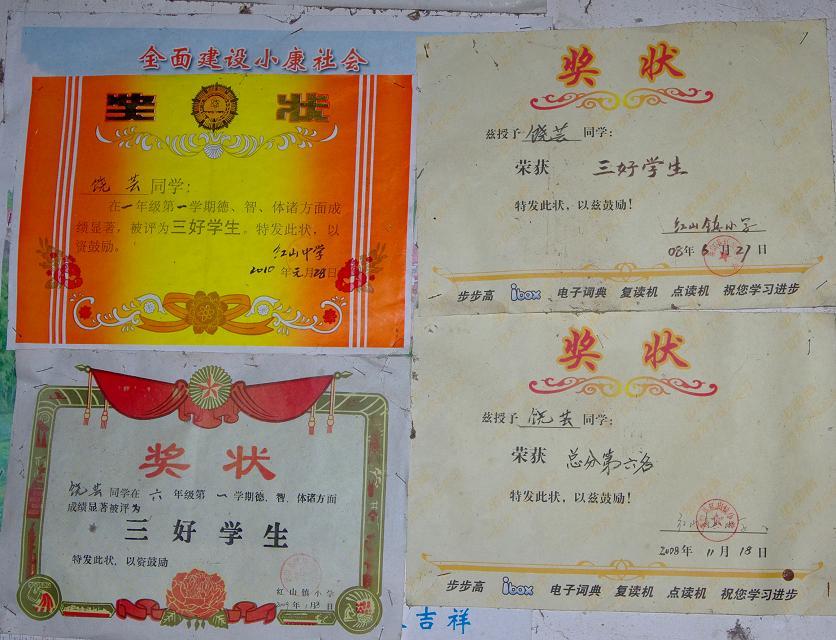 全面建设小康社会
奖 状
饶芸同学:
在一年级第一学期德、智、体诸方面成
绩显著，被评为三好学生。特发此状，以
资鼓励。
红山中学
2010年元月28日
奖 状
兹授予 饶芸 同学:
荣获 三好学生
特发此状，以兹鼓励!
红山镇小学
08年6月27日
步步高 ibox 电子词典 复读机 点读机 祝您学习进步
奖 状
饶芸同学在六年级第一学期德、智、体诸方面
成绩显著被评为
三好学生
特发此状，以资鼓励
红山镇小学
奖 状
兹授予 饶芸 同学:
荣获 总分第六名
特发此状，以兹鼓励!
2008年11月18日
步步高 ibox 电子词典 复读机 点读机 祝您学习进步
吉祥